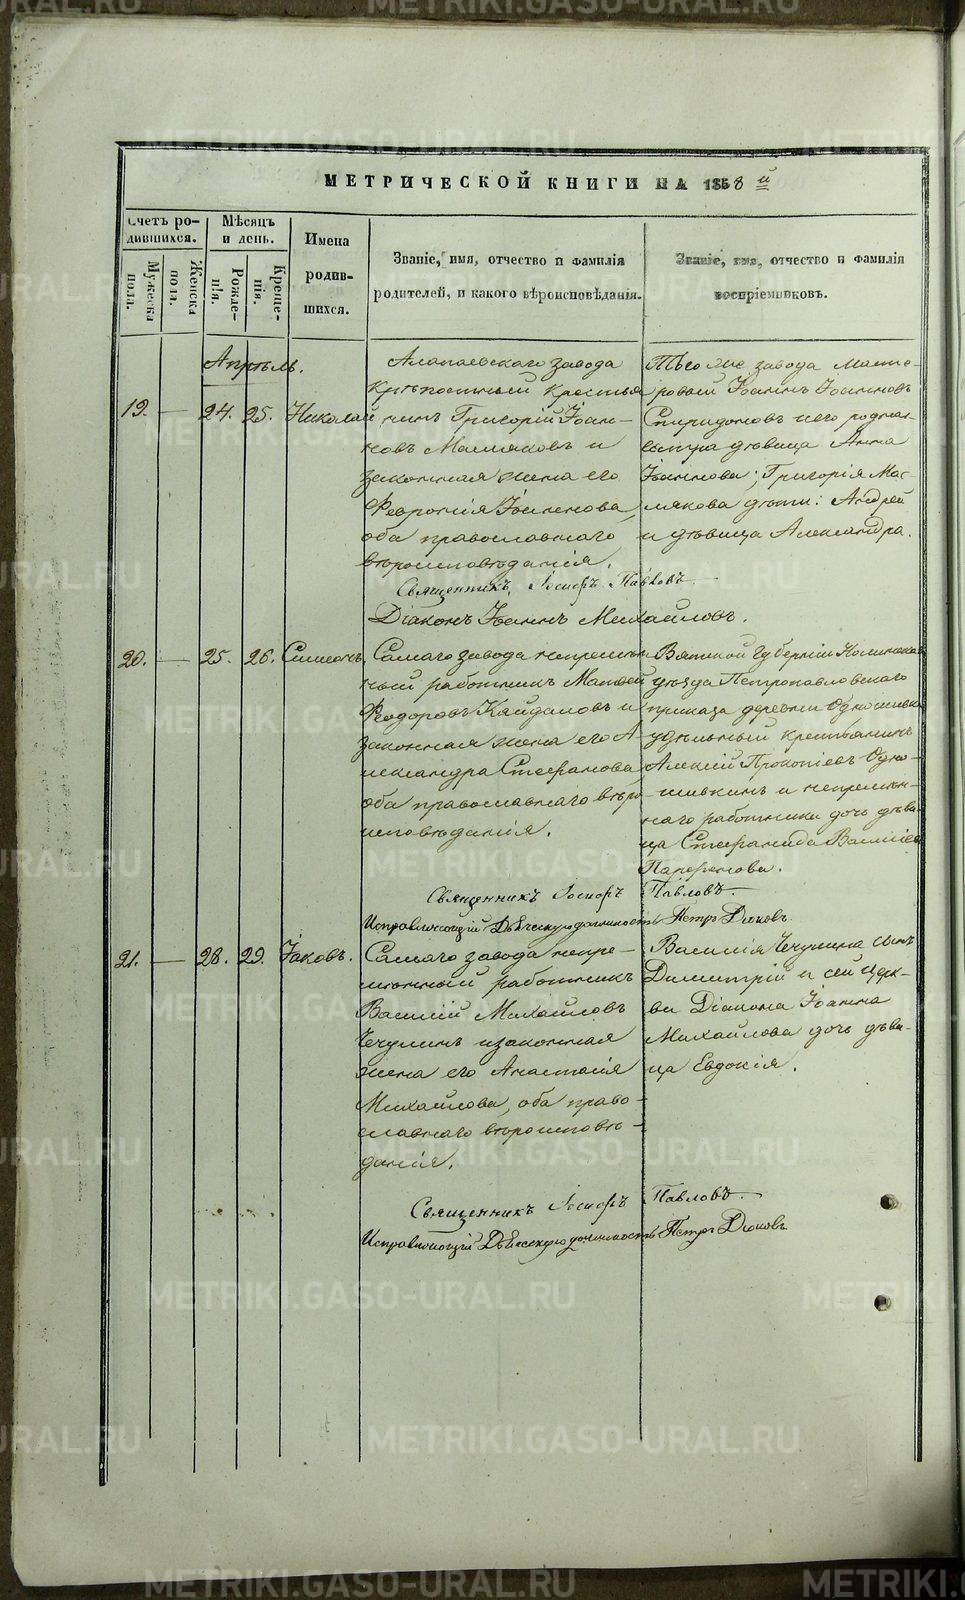 МЕТРИЧЕСКОЙ КНИГИ НА 1858 й
Счетъ ро-
дившихся.
Мужеска
пола.
Женска
пола.
Мѣсяцъ
и день.
Рожде-
нія.
Креще-
нія.
Имена
родив-
шихся.
Званіе, имя, отчество и фамилія
родителей, и какого вѣроисповѣданія.
Званіе, имя, отчество и фамилія
воспріемниковъ.
Апрѣль.
19. — 24. 25. Николай
Алапаевскаго завода
крѣпостный крестья
нинъ Григорій Іоан-
новъ Масляковъ и
законная жена его
Феронія Іоаннова,
оба православнаго
вѣроисповѣданія.
Того же завода масте-
ровый Іоаннъ Іоанновъ
Спиридоновъ и его родная
сестра дѣвица Анна
Іоаннова; Григорія Мас-
лякова дѣти: Андрей
и дѣвица Александра.
Священникъ Іосифъ Павловъ.
Діаконъ Іоаннъ Михайловъ.
20. — 25. 26. Симеонъ.
Самаго завода непремѣн
ный работникъ Матвей
Феодоровъ Кайдаловъ и
законная жена его А
лександра Стефанова
оба православнаго вѣро
исповѣданія.
Вятской Губерніи
уѣзда Петропавловскаго
приказа деревни
удѣльный крестьянинъ
Алексій Прокопіевъ Одно-
шивкинъ и непремѣн-
наго работника дочь дѣви-
ца Стефанида Василіева
Парфенова.
Священникъ Іосифъ Павловъ
Исправляющій Дьяческую должность Петръ Дюковъ.
21. — 28. 29. Іаковъ.
Самаго завода непре-
мѣнный работникъ
Василій Михайловъ
Чечулинъ и законная
жена его Анастасія
Михайлова, оба право-
славнаго вѣроисповѣ-
данія.
Василія Чечулина сынъ
Димитрій и сей Церк-
ви Діакона Іоанна
Михайлова дочь дѣви-
ца Евдокія.
Священникъ Іосифъ Павловъ.
Исправляющій Дьяческую должность Петръ Дюковъ
METRIKI.GASO-URAL.RU